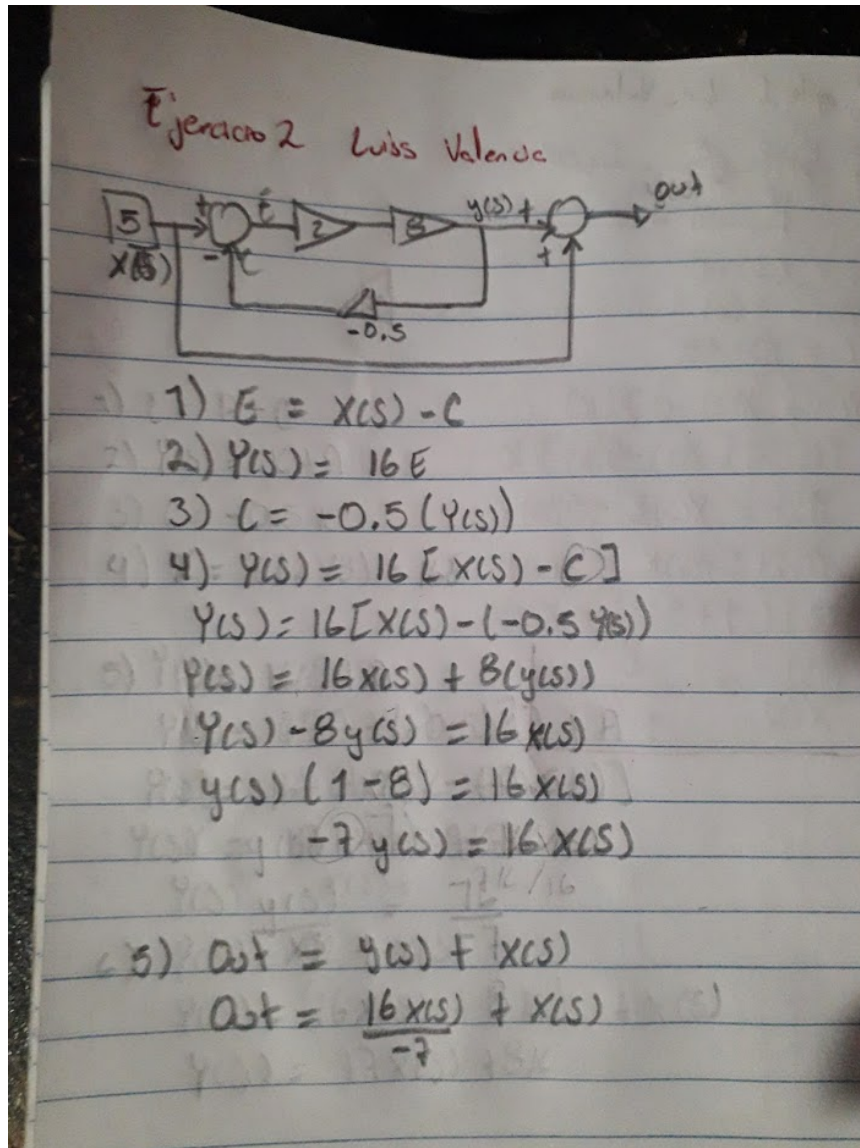 Ejercicio 2 Luiss Valencia
5 + - E C 2 8 y(s) + + out
X(s)
-0.5
1) E = X(S) - C
2) Y(S) = 16E
3) C = -0.5 (Y(S))
4) Y(S) = 16 [X(S) - C]
Y(S) = 16[X(S) - (-0.5 Y(S))
Y(S) = 16X(S) + 8(y(S))
Y(S) - 8y(S) = 16 X(S)
y(S) (1-8) = 16X(S)
-7 y(S) = 16 X(S)
5) Out = y(s) + X(S)
Out = 16X(S)/-7 + X(S)